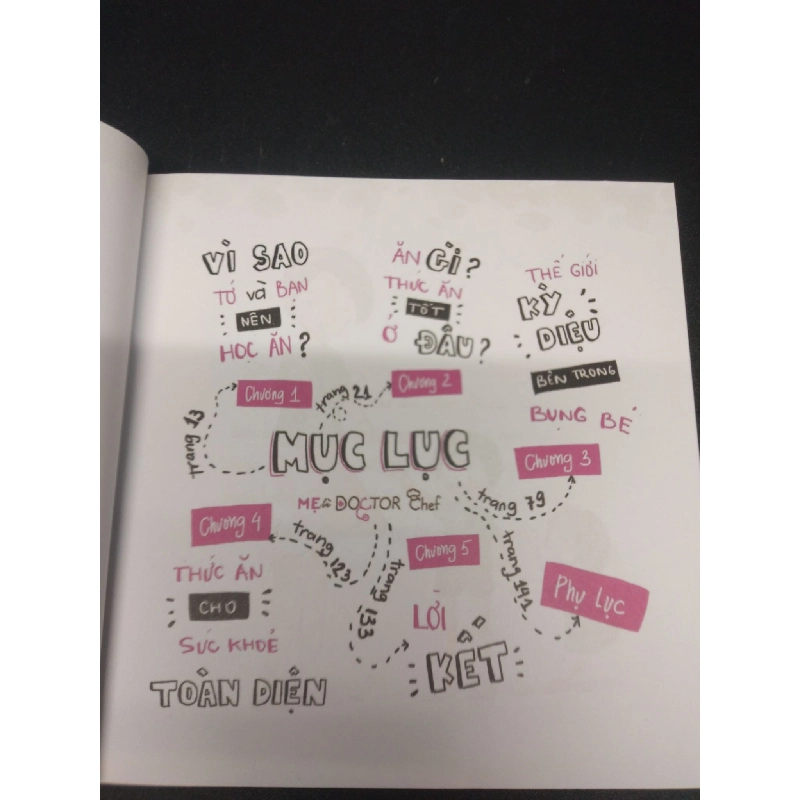 VÌ SAO
TỚ và BẠN
NÊN
HỌC ĂN?
trang 13
Chương 1
ĂN GÌ?
THỨC ĂN
TỐT
Ở ĐÂU?
trang 21
Chương 2
THẾ GIỚI
KỲ
DIỆU
BÊN TRONG
BỤNG BÉ
Chương 3
trang 79
MỤC LỤC
MẸ là DOCTOR Chef
Chương 4
trang 123
THỨC ĂN
CHO
SỨC KHOẺ
TOÀN DIỆN
Chương 5
trang 133
LỜI
KẾT
trang 141
PHỤ LỤC